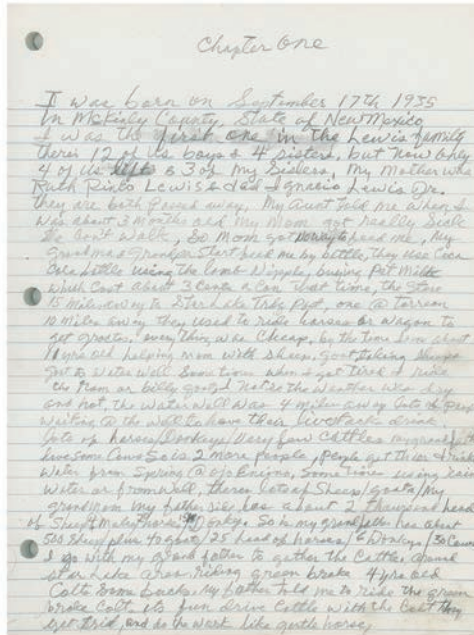 Chapter One
I was born on September 17th 1935
In McKinly County, State of New Mexico
I was the first one in the Lewis family
there's 12 of us boys & 4 sisters, but now only
4 of us left & 3 of my Sisters, My Mother was
Ruth Pinto Lewis & dad Ignacio Lewis Dr.
they are both Passed away. My Aunt told me when I
was about 3 months old my Mom got really Sick
She Don't walk, So Mom got to feed me, My
Grandma & Grandpa Start feed me by bottle, they use Coca
Cola bottle using the lamb Nipple, buying Pet Milk
which Cost about 3 Cents a Can that time, the Store
15 miles away to Star Lake Trdg Pst, one @ Torreon
10 miles away they used to ride horses or wagon to
get every thing was Cheap, by the time I am about
yrs old helping mom with sheep, goat taking sheeps
goat to water well Some times when I get tired I ride
the Ram or billy goat the weather was dry
and hot, the water well was 4 miles away lots of
waiting @ the well to have their livestocks drink.
lots of horses/Donkeys/Very few Cattles my grand
have some Cows So is 2 more people, People get their drink
Water from Spring @ Ojo Encino, Some times using rain
Water or from well, theres lots of Sheep/goats/My
grandmom my father side has about 2 thousand head
of Sheep & Many horses Donkeys. So is my grandfather has about
500 Sheep plus 40 goats/25 head of horses/6 Donkeys/30 Cows
I go with my grand father to gather the Cattle around
Star Lake area, riding green broke 4 yrs old
Colts Some bucks. My father told me to ride the green
broke Colt, its fun drive Cattle with the Colt they
get tired, and do the work like gentle horse,